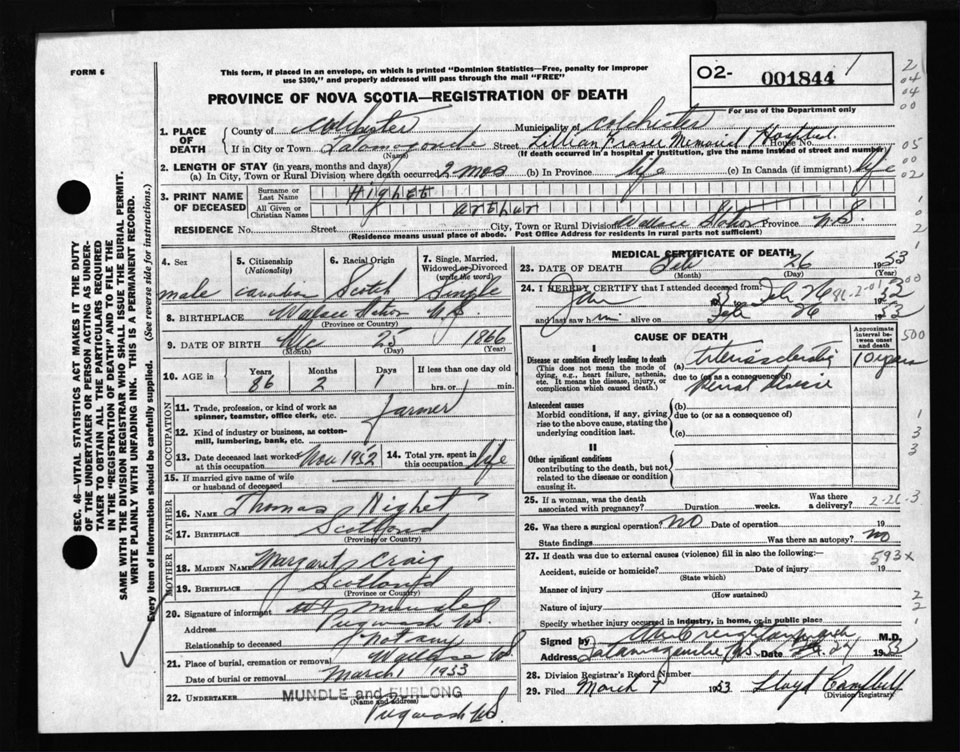 FORM 6
This form, if placed in an envelope, on which is printed "Dominion Statistics—Free, penalty for improper
use $300," and properly addressed will pass through the mail "FREE"
O2- 001844
For use of the Department only
PROVINCE OF NOVA SCOTIA—REGISTRATION OF DEATH
1. PLACE OF DEATH County of Colchester Municipality of Colchester
If in City or Town Tatamagouche (Name) Street Lillian Fraser Memorial Hospital House No.
(If death occurred in a hospital or institution, give the name instead of street and number)
2. LENGTH OF STAY (in years, months and days)
(a) In City, Town or Rural Division where death occurred 2 mos (b) In Province life (c) In Canada (if immigrant) life
3. PRINT NAME OF DECEASED Surname or Last Name Highet
All Given or Christian Names arthur
RESIDENCE No. Street City, Town or Rural Division Wallace Station Province N.S.
(Residence means usual place of abode. Post Office Address for residents in rural parts not sufficient)
4. Sex male
5. Citizenship (Nationality) Canadian
6. Racial Origin Scotch
7. Single, Married, Widowed or Divorced (write the word) Single
8. BIRTHPLACE Wallace Station N.S.
(Province or Country)
9. DATE OF BIRTH Dec 25 1866
(Month) (Day) (Year)
10. AGE in Years 86 Months 2 Days 1 If less than one day hrs. or min.
OCCUPATION
11. Trade, profession, or kind of work as spinner, teamster, office clerk, etc. farmer
12. Kind of industry or business, as cotton-mill, lumbering, bank, etc.
13. Date deceased last worked at this occupation Nov 1952
14. Total yrs. spent in this occupation life
15. If married give name of wife or husband of deceased
FATHER
16. NAME Thomas Highet
17. BIRTHPLACE Scotland
(Province or Country)
MOTHER
18. MAIDEN NAME Margaret Craig
19. BIRTHPLACE Scotland
(Province or Country)
20. Signature of informant Mundle
Address Pugwash N.S.
Relationship to deceased Not any
21. Place of burial, cremation or removal Wallace N.S.
Date of burial or removal March 1 1953
22. UNDERTAKER MUNDLE and BURLONG
(Name and address)
Pugwash N.S.
MEDICAL CERTIFICATE OF DEATH
23. DATE OF DEATH Feb 26 1953
(Month) (Day) (Year)
24. I HEREBY CERTIFY that I attended deceased from:
Jan to Feb 26
and last saw him alive on Feb 26 1953
CAUSE OF DEATH
Approximate interval between onset and death
I
Disease or condition directly leading to death
(This does not mean the mode of dying, e.g., heart failure, asthenia, etc. It means the disease, injury, or complication which caused death.)
(a) Arteriosclerosis 10 years
due to (or as a consequence of)
Antecedent causes
Morbid conditions, if any, giving rise to the above cause, stating the underlying condition last.
(b)
due to (or as a consequence of)
(c)
II
Other significant conditions contributing to the death, but not related to the disease or condition causing it.
25. If a woman, was the death associated with pregnancy? Duration weeks. Was there a delivery?
26. Was there a surgical operation? No Date of operation 19
State findings Was there an autopsy? no
27. If death was due to external causes (violence) fill in also the following:—
Accident, suicide or homicide? (State which) Date of injury 19
Manner of injury (How sustained)
Nature of injury
Specify whether injury occurred in industry, in home, or in public place
Signed by M.D.
Address Tatamagouche N.S. Date
28. Division Registrar's Record Number
29. Filed March 7 1953 Lloyd Campbell
(Division Registrar)
500
2-26-3
593x
SEC. 46—VITAL STATISTICS ACT MAKES IT THE DUTY
OF THE UNDERTAKER OR PERSON ACTING AS UNDER-
TAKER TO OBTAIN ALL THE PARTICULARS REQUIRED
IN THE "REGISTRATION OF DEATH" AND TO FILE THE
SAME WITH THE DIVISION REGISTRAR WHO SHALL ISSUE THE BURIAL PERMIT.
WRITE PLAINLY WITH UNFADING INK. THIS IS A PERMANENT RECORD.
Every item of information should be carefully supplied. (See reverse side for instructions.)